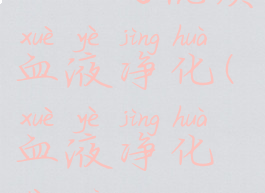 xuè yè jìng huà
血液净化(
xuè yè jìng huà
血液净化